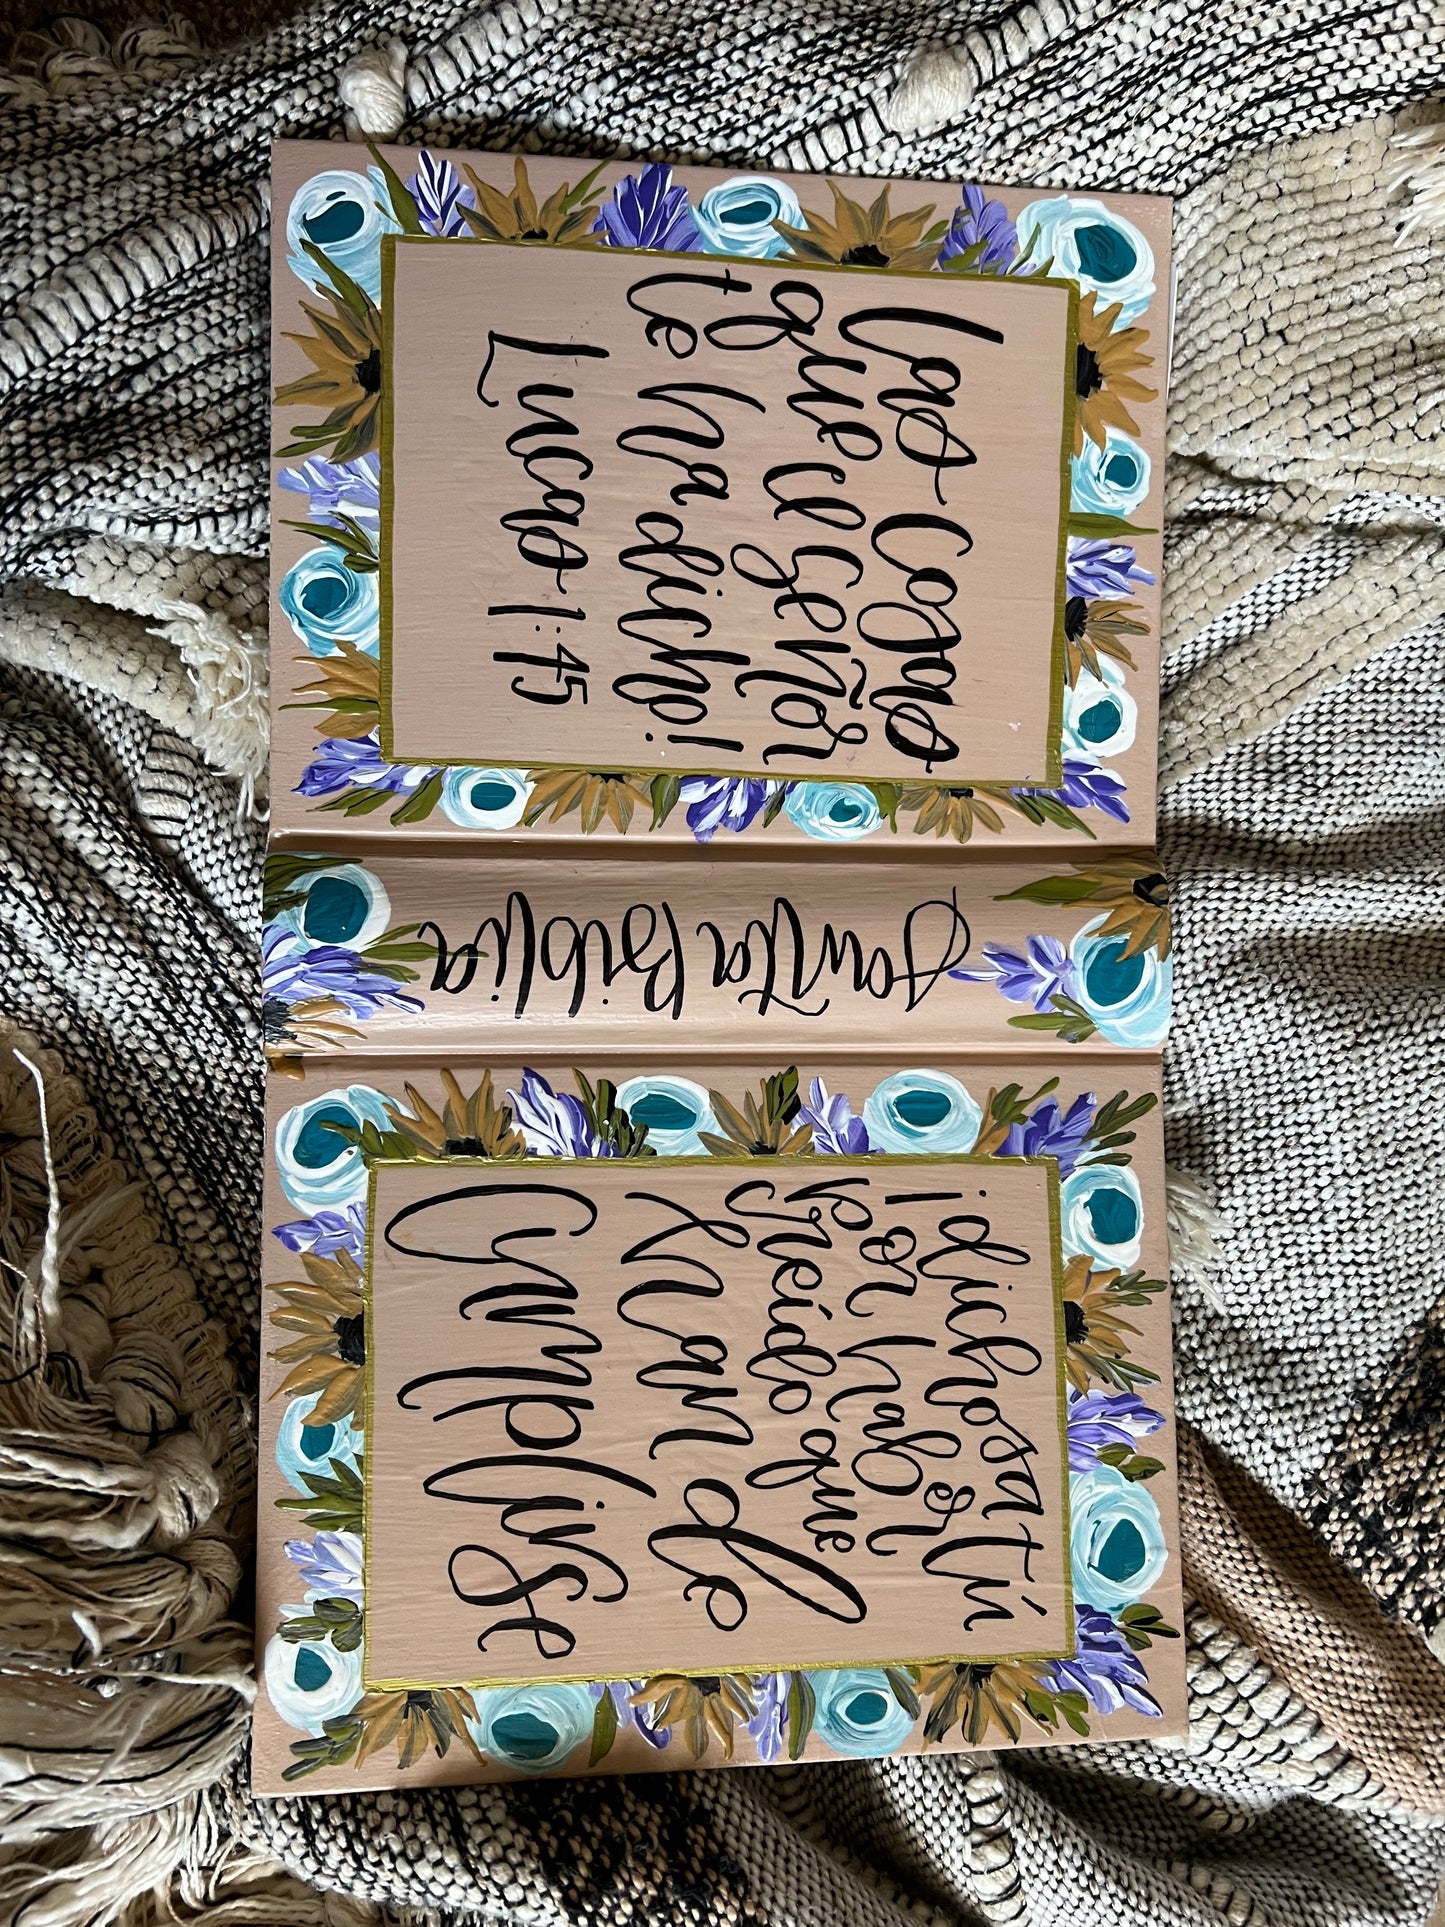 ¡dichosa tú
Por haber
creído que
han de
Cumplirse
Santa Biblia
las Cosas
que el Señor
te ha dicho!
Lucas 1:45